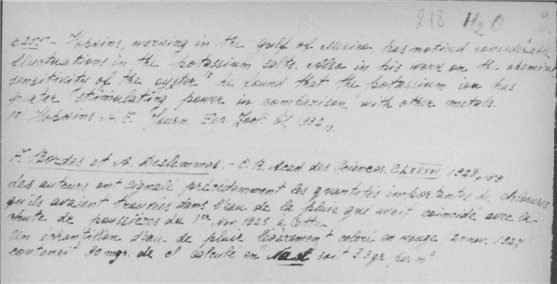 218 H2O
p. 255 - Hopkins, working in the Gulf of Mexico has noticed considerable
fluctuations in the potassium salts. Also in his work on the chemical
sensitivity of the oyster he found that the potassium ion has
greater stimulating power in comparison with other metals.
Hopkins A. E. Journ. Exp. Zool. 61, 1932
F. Bordas et A. Desfemmes. - C. R. Acad des Sciences. CLXXXVI, 1928,
des auteurs ont signalé précédemment les quantités importantes de chlorures
qu'ils avaient trouvées dans l'eau de la pluie qui avait coincidé avec la
chute de poussières du 1er Nov. 1925 à Cette
Un échantillon d'eau de pluie légèrement coloré en rouge (20 nov. 1927
contenait 40 mgr. de cl calculé en NaCl soit 3.3 gr par m²